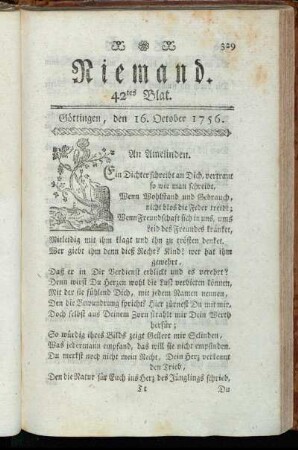 329
Niemand.
42tes Blat.
Göttingen, den 16. October 1756.
An Amelinden.
Ein Dichter schreibt an Dich, vertraut
so wie man schreibt,
Wenn Wohlstand und Gebrauch,
nicht blos die Feder treibt;
Wenn Freundschaft sich in uns, ums
Leid des Freundes kränket,
Mitleidig mit ihm klagt und ihn zu trösten denket.
Wer giebt ihm denn dieß Recht? Kind! wer hat ihm
gewehrt,
Daß er in Dir Verdienst erblickt und es verehrt?
Denn wirst Du Herzen wohl die Lust verbieten können,
Mit der sie fühlend Dich, mit jedem Namen nennen,
Den die Bewundrung spricht? Hier zürnest Du mit mir.
Doch selbst aus Deinem Zorn strahlt mir Dein Werth
herfür;
So würdig ihres Bilds zeigt Gellert mir Selinden,
Was jedermann empfand, das will sie nicht empfinden.
Du merkst noch nicht mein Recht, Dein Herz verkennt
den Trieb,
Den die Natur für Euch ins Herz des Jünglings schrieb,
Tt
Du